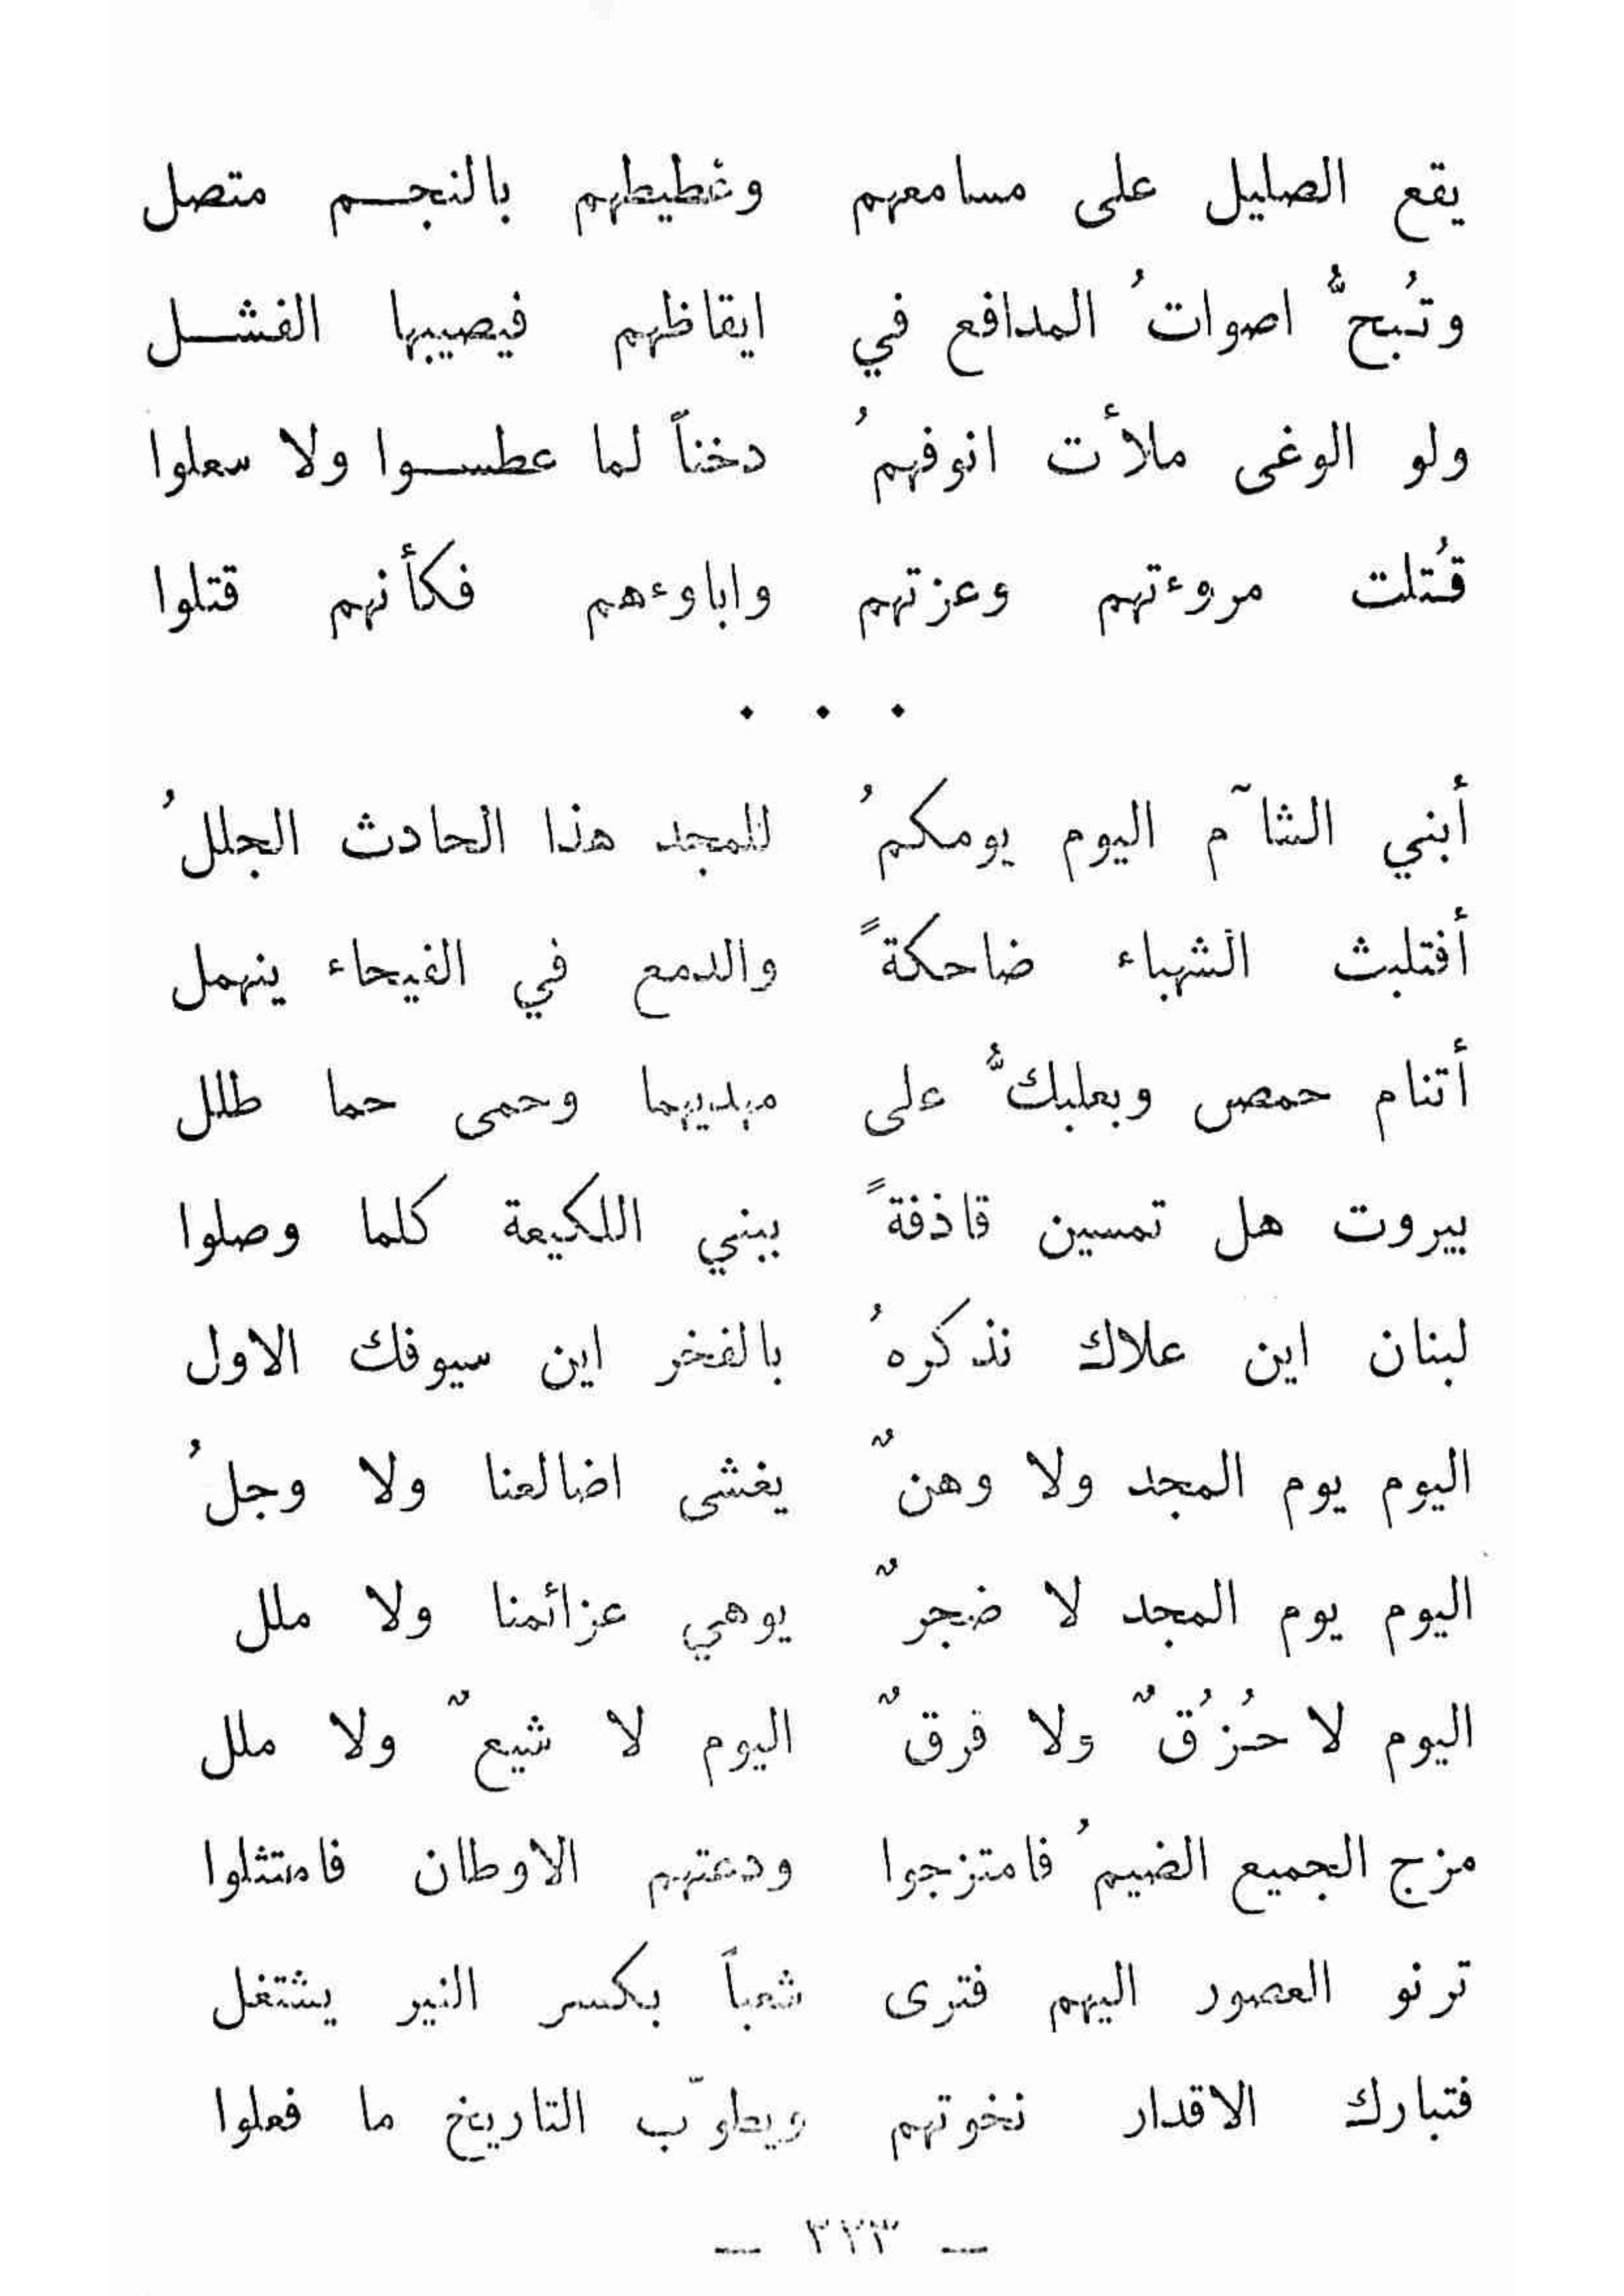 يقع الصليل على مسامعهم وغطيطهم بالنجم متصل
وتُبحُّ اصواتُ المدافع في ايقاظهم فيصيبها الفشل
ولو الوغى ملأت انوفهمُ دخناً لما عطسوا ولا سعلوا
قُتلت مروءتهم وعزتهم واباوءهم فكأنهم قتلوا
. . .
أبني الشآم اليوم يومكمُ للمجد هذا الحادث الجللُ
أفتلبث الشهباء ضاحكةً والدمع في الفيحاء ينهمل
أتنام حمص وبعلبكُّ على مهديهما وحمى حما طلل
بيروت هل تمسين قاذفةً ببني اللكيعة كلما وصلوا
لبنان اين علاك نذكرهُ بالفخر اين سيوفك الاول
اليوم يوم المجد ولا وهنٌ يغشى اضالعنا ولا وجلُ
اليوم يوم المجد لا ضجرٌ يوهي عزائمنا ولا ملل
اليوم لا حُزُقٌ ولا فرقٌ اليوم لا شيعٌ ولا ملل
مزج الجميع الضيمُ فامتزجوا ودعتهم الاوطان فامتثلوا
ترنو العصور اليهم فترى شعباً بكسر النير يشتغل
فتبارك الاقدار نخوتهم ويطوّب التاريخ ما فعلوا
— ٣٢٣ —